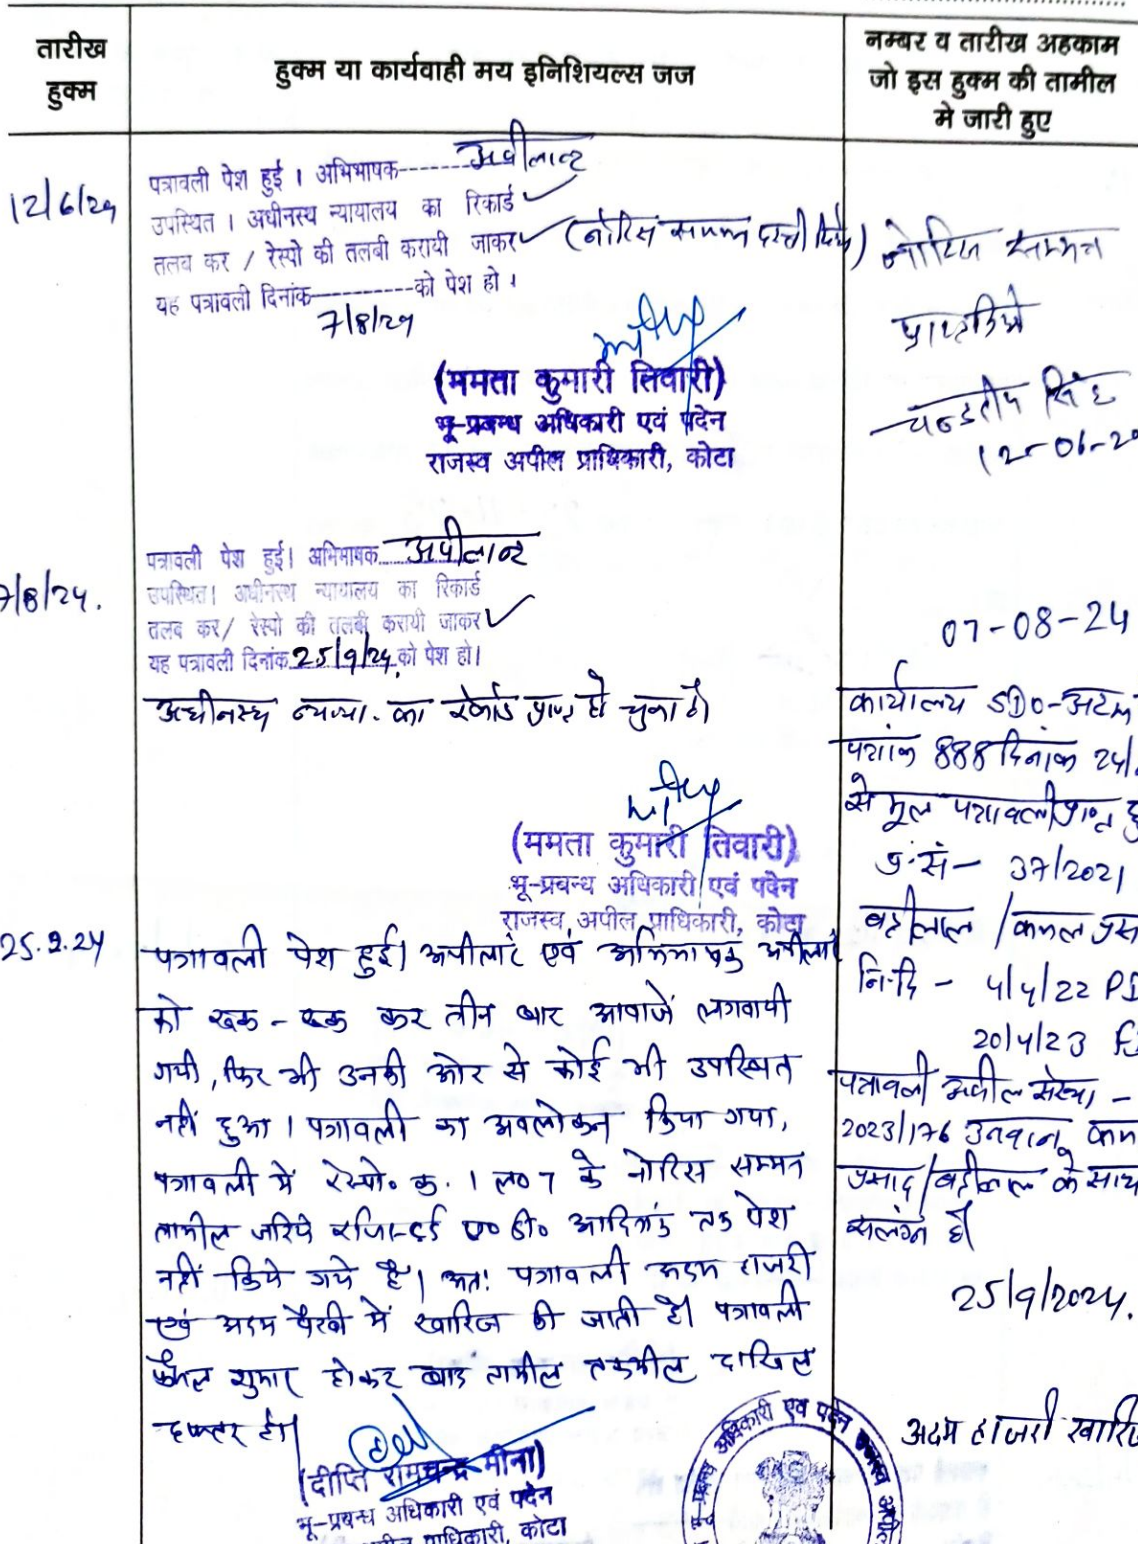 तारीख
हुक्म
हुक्म या कार्यवाही मय इनिशियल्स जज
नम्बर व तारीख अहकाम
जो इस हुक्म की तामील
मे जारी हुए
12/6/24
पत्रावली पेश हुई । अभिभाषक-------अपीलान्ट
उपस्थित । अधीनस्थ न्यायालय का रिकार्ड ✓
तलब कर / रेस्पो की तलबी करायी जाकर ✓ (नोटिस सम्मन दस्ती
यह पत्रावली दिनांक----------को पेश हो ।
7/8/24
(ममता कुमारी तिवारी)
भू-प्रबन्ध अधिकारी एवं पदेन
राजस्व अपील प्राधिकारी, कोटा
नोटिस सम्मन
प्राप्त किये
सिंह
12-06-2
7/8/24.
पत्रावली पेश हुई। अभिभाषक......अपीलान्ट
उपस्थित। अधीनस्थ न्यायालय का रिकार्ड
तलब कर/ रेस्पो की तलबी करायी जाकर ✓
यह पत्रावली दिनांक 25/9/24 को पेश हो।
अधीनस्थ न्याया. का रेकॉर्ड प्राप्त हो चुका है।
(ममता कुमारी तिवारी)
भू-प्रबन्ध अधिकारी एवं पदेन
राजस्व अपील प्राधिकारी, कोटा
07-08-24
कार्यालय SDO-
पत्रांक 888 दिनांक 24/
से मूल पत्रावली प्राप्त
प्र.सं- 37/2021
बद्रीलाल / कमल
नि.दि - 4/4/22
20/4/23
पत्रावली अपील संख्या -
2023/176 उनवान
प्रसाद/बद्रीलाल के साथ
संलग्न है।
25.9.24
पत्रावली पेश हुई। अपीलांट एवं अभिभाषक अपीलांट
को रूक - रूक कर तीन बार आवाजें लगवायी
गयी, फिर भी उनकी ओर से कोई भी उपस्थित
नहीं हुआ । पत्रावली का अवलोकन किया गया,
पत्रावली में रेस्पो० क्र. 1 ता० 7 के नोटिस सम्मन
तामील जरिये रजिस्टर्ड ए० डी० आदिनांक तक पेश
नहीं किये गये है। अतः पत्रावली अदम हाजरी
एवं अदम पैरवी में खारिज की जाती है। पत्रावली
फैसल शुमार होकर बाद तामील तकमील दाखिल
दफ्तर हो।
25/9/2024.
अदम हाजरी खारिज
(दीप्ति रामचन्द्र मीना)
भू-प्रबन्ध अधिकारी एवं पदेन
अपील प्राधिकारी, कोटा
भू-प्रबन्ध अधिकारी एवं पदेन राजस्व अपील